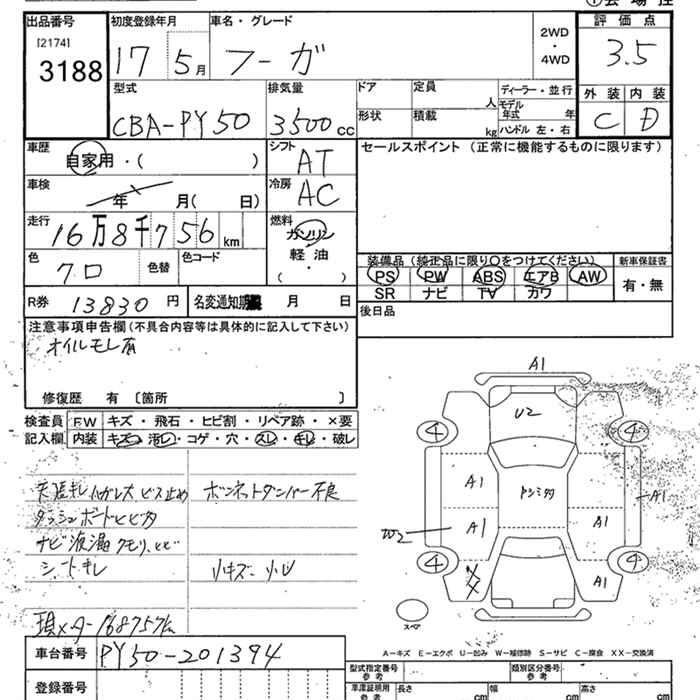 出品番号 初度登録年月 車名・グレード 2WD・4WD 評価点
[2174]
3188 17 5月 フーガ 3.5
型式 排気量 ドア 定員 人 ディーラー・並行 外装 内装
CBA-PY50 3500cc 形状 積載 kg モデル年式 年 ハンドル 左・右 C D
車歴 自家用・( ) シフト AT セールスポイント (正常に機能するものに限ります)
車検 年 月( 日) 冷房 AC
走行 16万8千756km 燃料 ガソリン
色 クロ 色替 色コード 軽油・( ) 装備品 (純正品に限り○をつけてください) 新車保証書
PS PW ABS エアB AW 有・無
SR ナビ TV カワ
R券 13830円 名変通知期限 月 日 後日品
注意事項申告欄(不具合内容等は具体的に記入して下さい)
オイルモレ有
修復歴 有 〔箇所 〕
検査員記入欄 FW キズ・飛石・ヒビ割・リペア跡・×要
内装 キズ・汚レ・コゲ・穴・スレ・キレ・破レ
天張キレ ハガレ大 ビス止め ボンネットダンパー不良
ダッシュボードヒビ大
ナビ液漏 クモリ、ヒビ
シートキレ 小キズ 小U
現メーター168757km
A1
U2
4 4
A1 トシミ大 A1
W2 A1 A1
4 4
XX A1
スペア
A-キズ E-エクボ U-凹み W-補修跡 S-サビ C-腐食 XX-交換済
車台番号 PY50-201394
型式指定番号 参考 類別区分番号 参考
登録番号 車庫証明用 参考 長さ cm 幅 cm 高さ cm